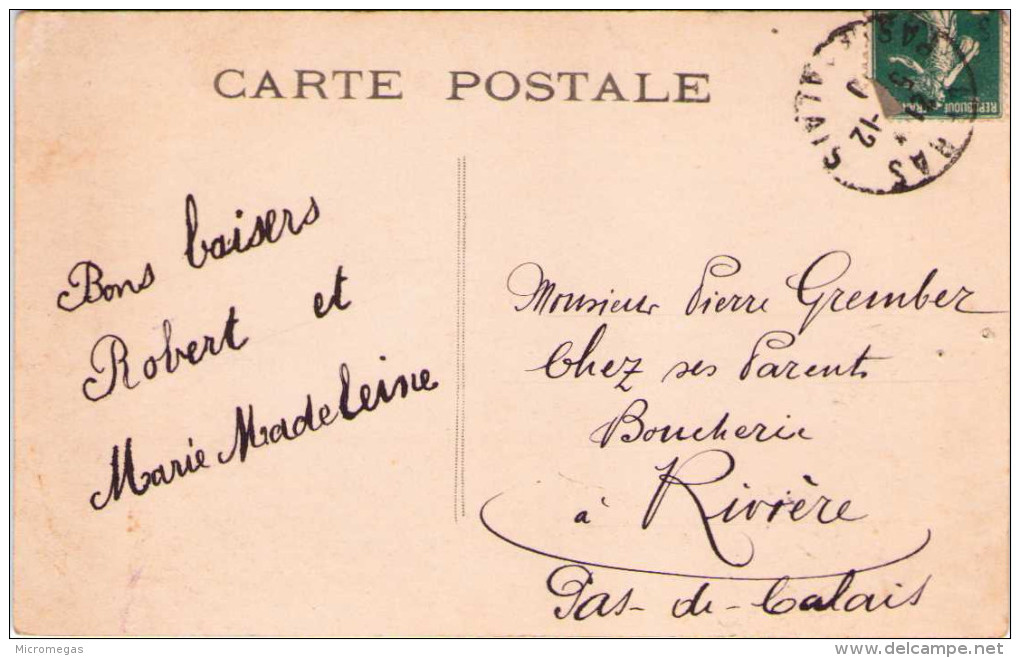 CARTE POSTALE
Bons baisers
Robert et
Marie Madeleine
Monsieur Pierre Grember
Chez ses Parents
Boucherie
à Rivière
Pas-de-Calais
-12
REPUBLIQUE
Micromegas
delcampe.net